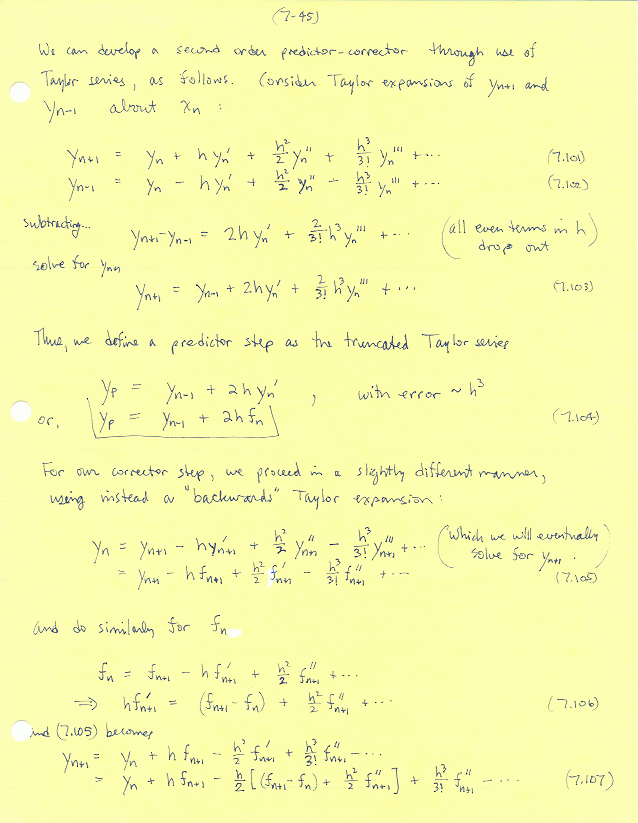 (7-45)
We can develop a second order predictor-corrector through use of
Taylor series, as follows. Consider Taylor expansions of yₙ₊₁ and
yₙ₋₁ about xₙ :
yₙ₊₁ = yₙ + h yₙ' + h²/2 yₙ'' + h³/3! yₙ''' + ··· (7.101)
yₙ₋₁ = yₙ - h yₙ' + h²/2 yₙ'' - h³/3! yₙ''' + ··· (7.102)
subtracting... yₙ₊₁ - yₙ₋₁ = 2h yₙ' + 2/3! h³ yₙ''' + ··· (all even terms in h drop out)
solve for yₙ₊₁
yₙ₊₁ = yₙ₋₁ + 2h yₙ' + 2/3! h³ yₙ''' + ··· (7.103)
Thus, we define a predictor step as the truncated Taylor series
yₚ = yₙ₋₁ + 2h yₙ' , with error ~ h³
or, yₚ = yₙ₋₁ + 2h fₙ (7.104)
For our corrector step, we proceed in a slightly different manner,
using instead a "backwards" Taylor expansion :
yₙ = yₙ₊₁ - h y'ₙ₊₁ + h²/2 y''ₙ₊₁ - h³/3! y'''ₙ₊₁ + ··· (which we will eventually solve for yₙ₊₁.)
= yₙ₊₁ - h fₙ₊₁ + h²/2 f'ₙ₊₁ - h³/3! f''ₙ₊₁ + ··· (7.105)
and do similarly for fₙ
fₙ = fₙ₊₁ - h f'ₙ₊₁ + h²/2 f''ₙ₊₁ + ···
⇒ h f'ₙ₊₁ = (fₙ₊₁ - fₙ) + h²/2 f''ₙ₊₁ + ··· (7.106)
and (7.105) becomes
yₙ₊₁ = yₙ + h fₙ₊₁ - h²/2 f'ₙ₊₁ + h³/3! f''ₙ₊₁ - ···
= yₙ + h fₙ₊₁ - h/2 [(fₙ₊₁ - fₙ) + h²/2 f''ₙ₊₁] + h³/3! f''ₙ₊₁ - ··· (7.107)